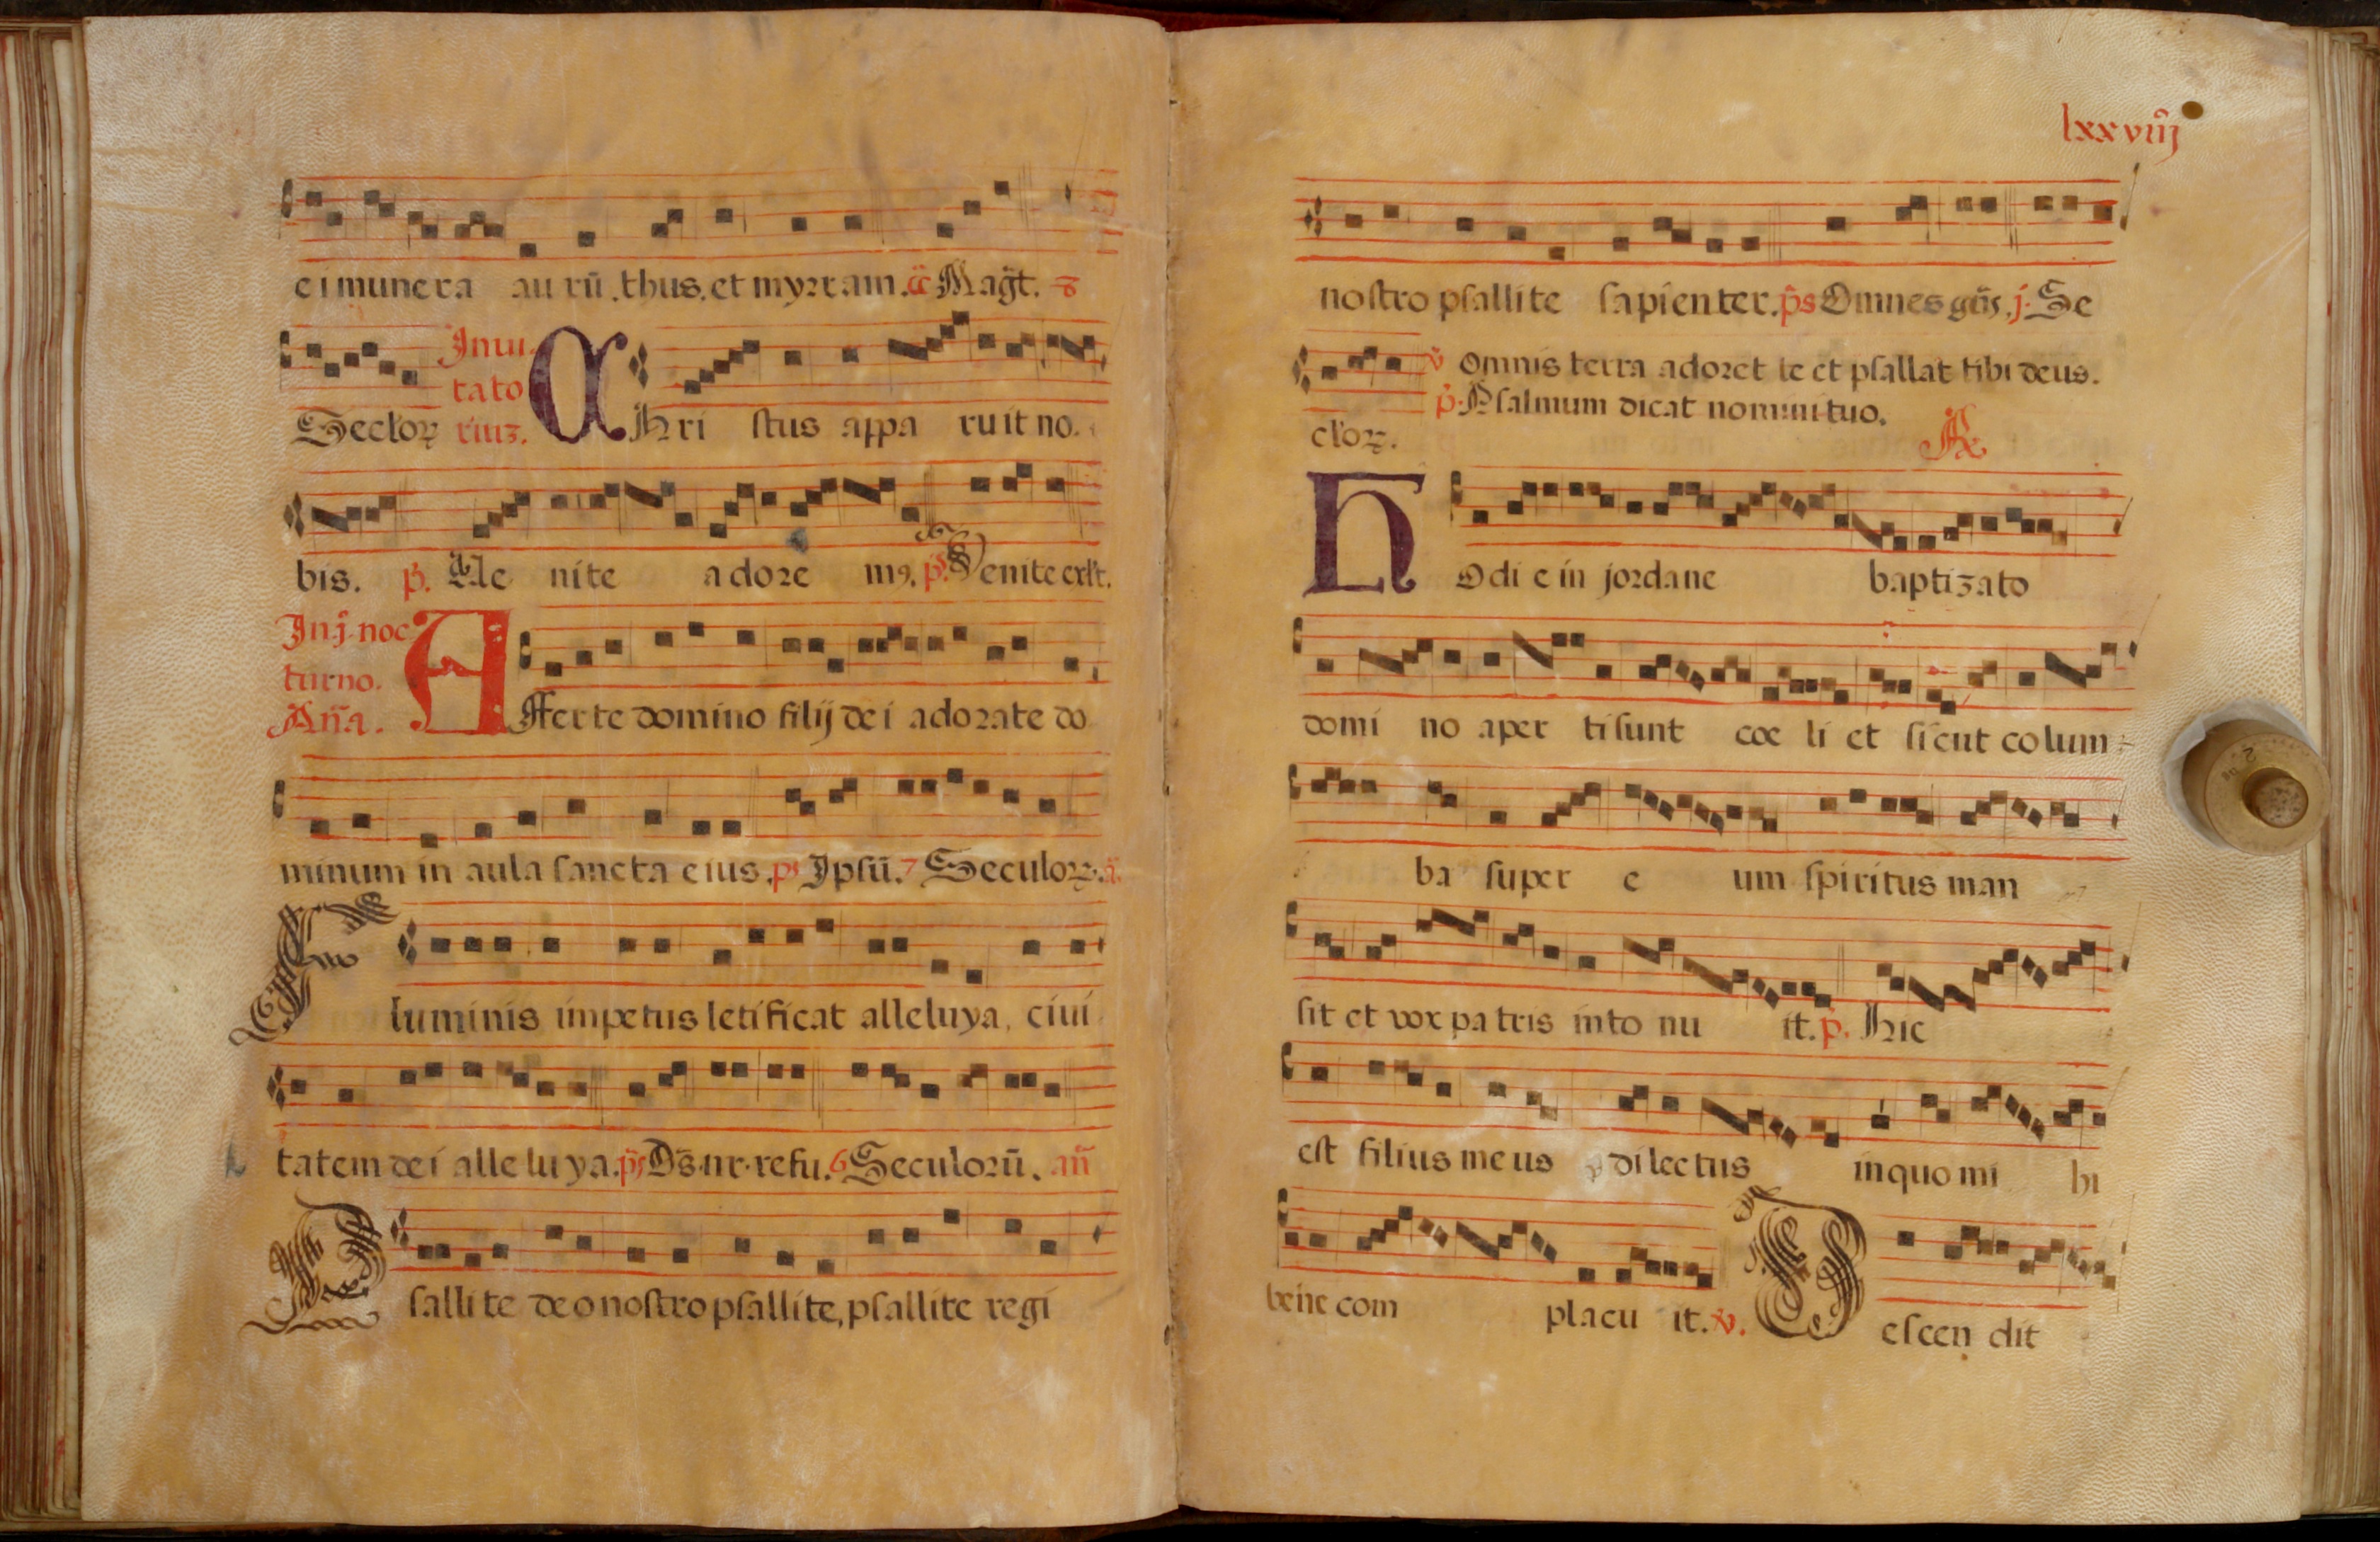 ei munera au rū . thus. et myrram. Magt. 8
Inui
tato
riuz.
Seclorꝝ Christus appa ruit no.
bis. p. Ve nite adore mꝰ. ps. Venite exlt.
In j noc
turno.
Aña.
Afferte domino filij dei adorate do
minum in aula sancta eius. ps Ipsū. 7 Seculorꝝ. a.
Fluminis impetus letificat alleluya, ciui
tatem dei alleluya. ps Ds. nr. refu. 6 Seculorū. añ
Psallite deo nostro psallite, psallite regi
lxxviiij
nostro psallite sapienter. ps Omnes gñs. j. Se
ꝟ omnis terra adoret te et psallat tibi deus.
p. Psalmum dicat nomini tuo.
clorꝝ. ℟
Hodi e in jordane baptizato
domi no aper ti sunt coe li et sicut colum
ba super e um spiritus man
sit et vox patris into nu it. p. Hic
est filius meus dilectus in quo mi hi
bene com placu it. ꝟ. Descen dit